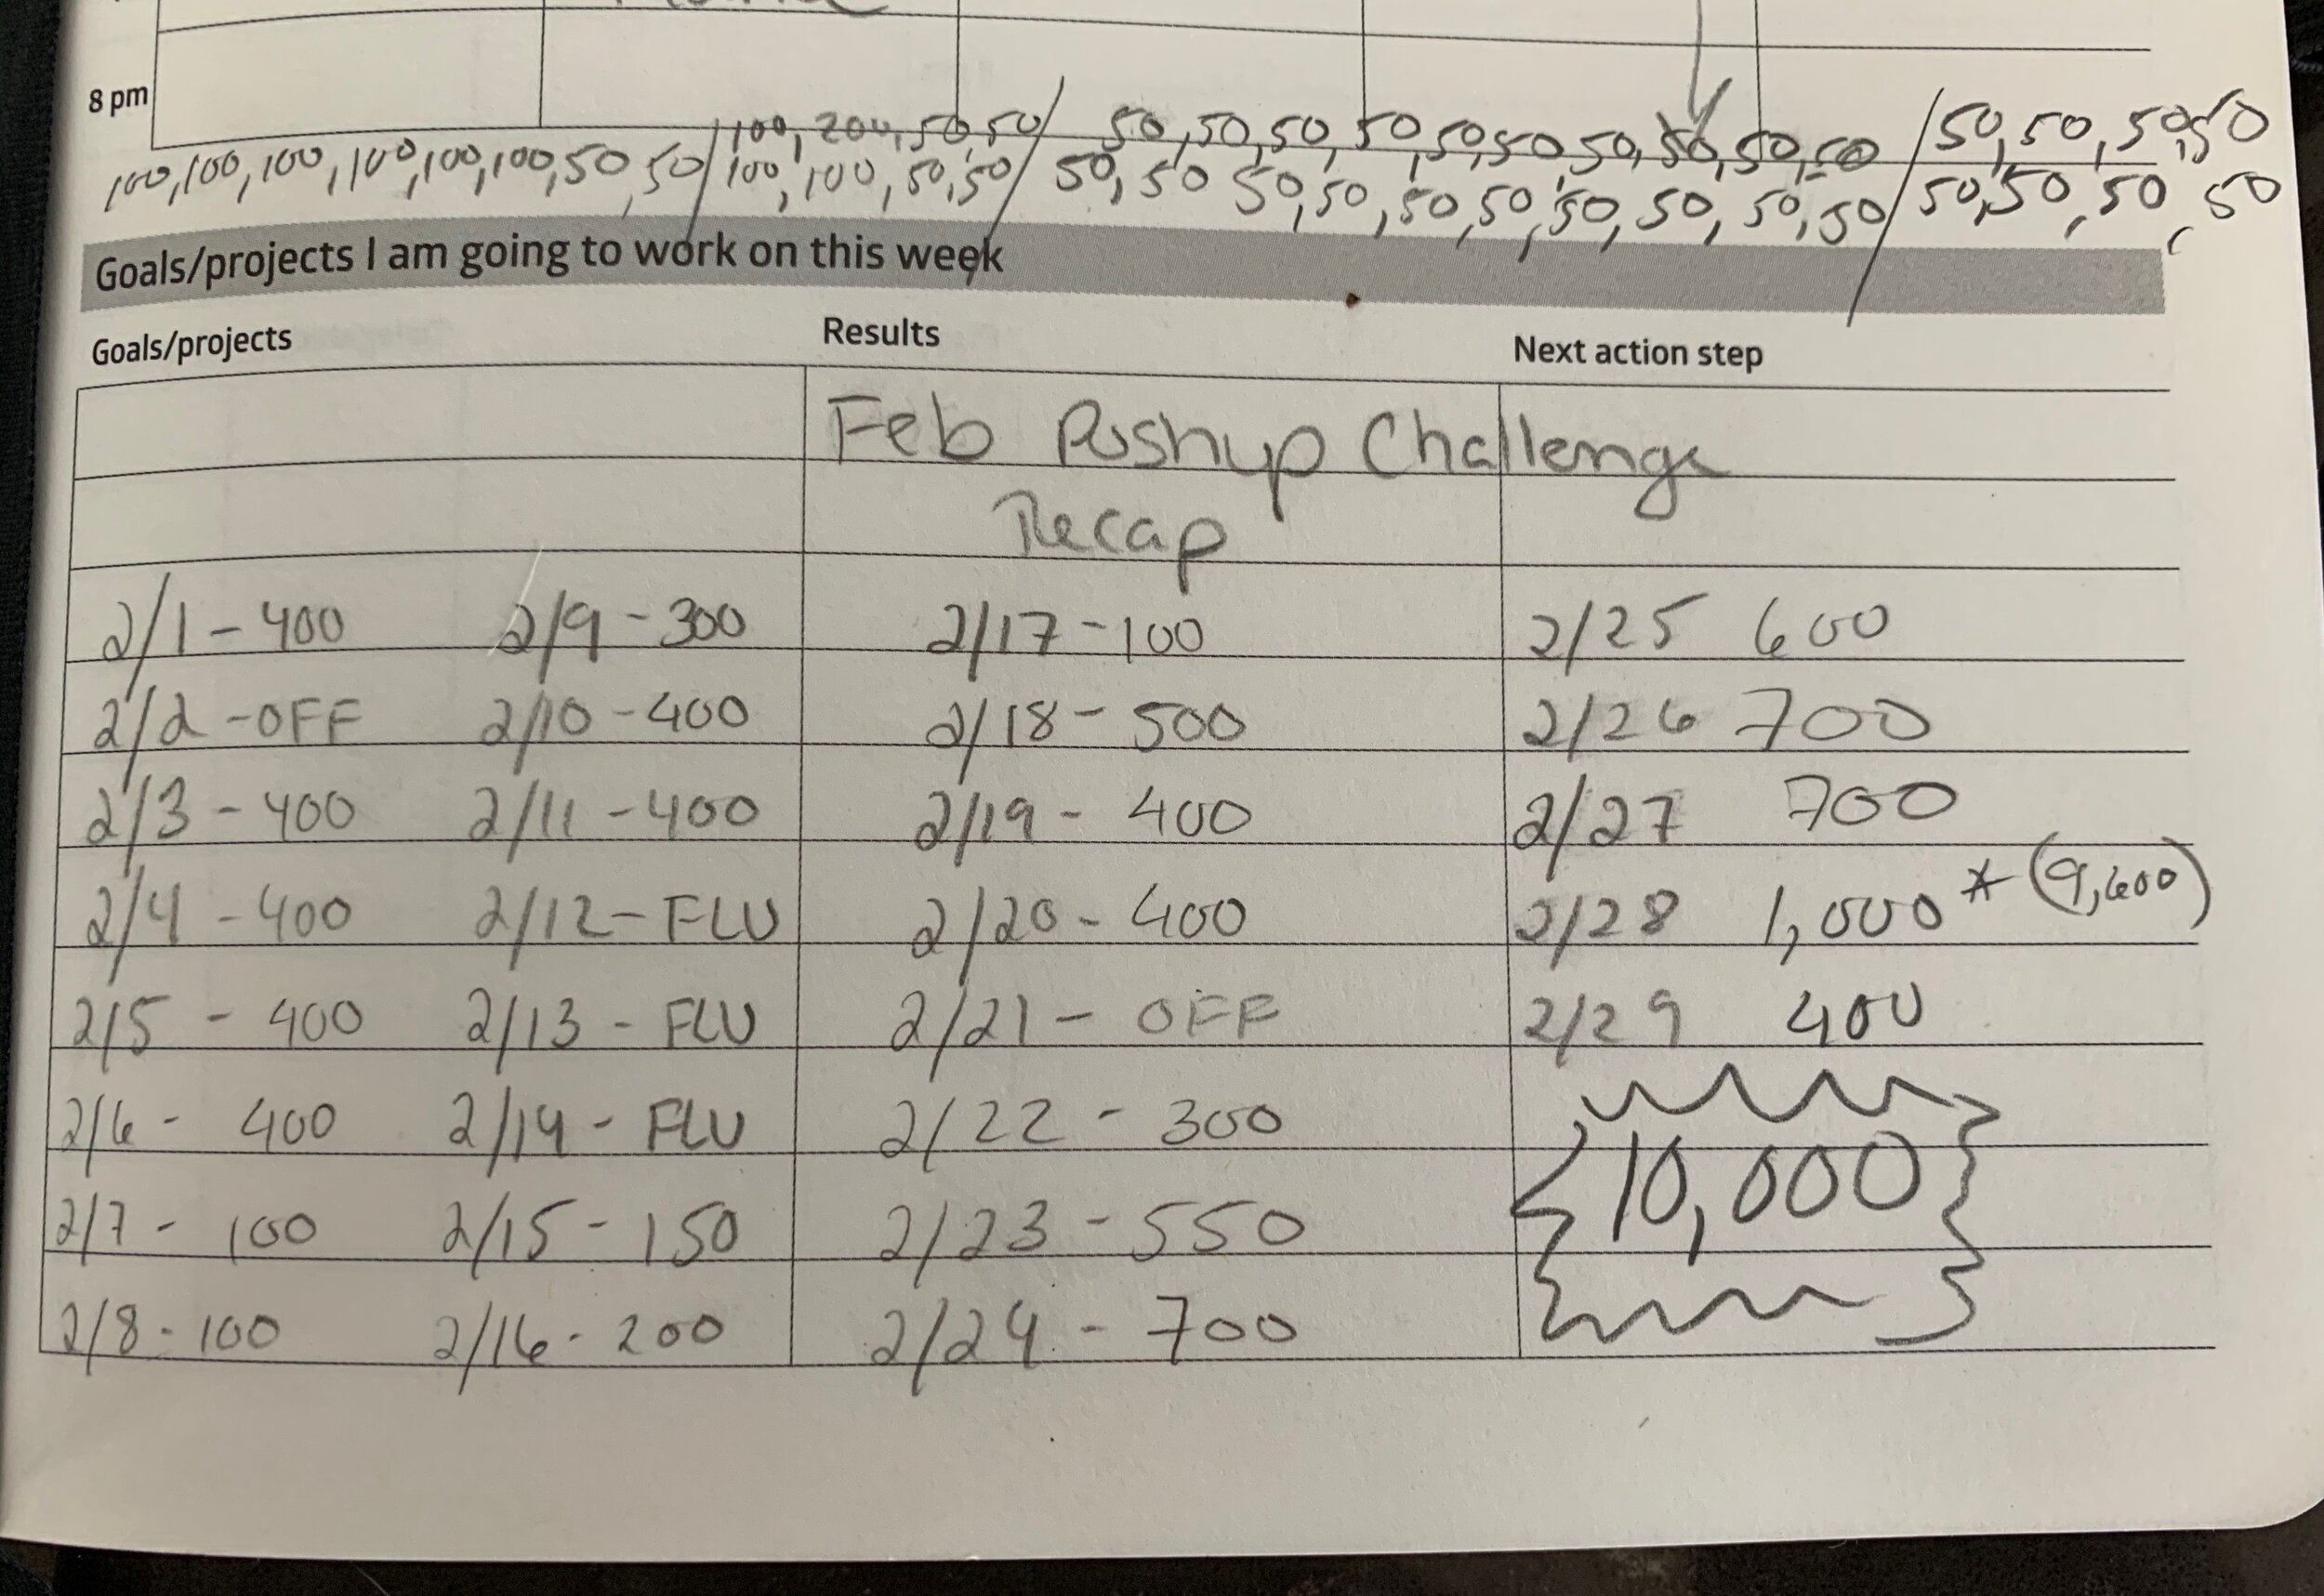 8 pm
100, 200, 50, 50 / 50, 50, 50, 50, 50, 50, 50, 50, 50, 50 / 50, 50, 50, 50
100, 100, 100, 100, 100, 100, 50, 50 / 100, 100, 50, 50 / 50, 50 50, 50, 50, 50, 50, 50, 50, 50 / 50, 50, 50, 50
Goals/projects I am going to work on this week
Goals/projects Results Next action step
Feb Pushup Challenge
Recap
2/1 - 400 2/9 - 300 2/17 - 100 2/25 600
2/2 - OFF 2/10 - 400 2/18 - 500 2/26 700
2/3 - 400 2/11 - 400 2/19 - 400 2/27 700
2/4 - 400 2/12 - FLU 2/20 - 400 2/28 1,000 * (9,600)
2/5 - 400 2/13 - FLU 2/21 - OFF 2/29 400
2/6 - 400 2/14 - FLU 2/22 - 300
2/7 - 100 2/15 - 150 2/23 - 550 10,000
2/8 - 100 2/16 - 200 2/24 - 700